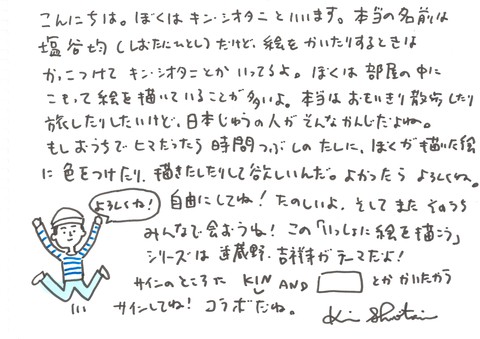 こんにちは。ぼくは キン・シオタニ といいます。本当の名前は
塩谷均(しおたにひとし)だけど、絵をかいたりするときは
かっこつけて キン・シオタニとか いってるよ。ぼくは 部屋の中に
こもって絵を描いていることが多いよ。本当は おもいきり散歩したり
旅したりしたいけど、日本じゅうの人がそんなかんじだよね。
もし おうちで ヒマだったら 時間つぶしの たしに、ぼくが描いた絵
に 色をつけたり、描きたしたりして欲しいんだ。よかったら よろしくね。
よろしくね!
自由にしてね! たのしいよ、そして また そのうち
みんなで会おうね! この「いっしょに絵を描こう」
シリーズは 武蔵野・吉祥寺がテーマだよ!
サインのところに KIN AND とか かいたから
サインしてね! コラボだね。 Kin Shiotani